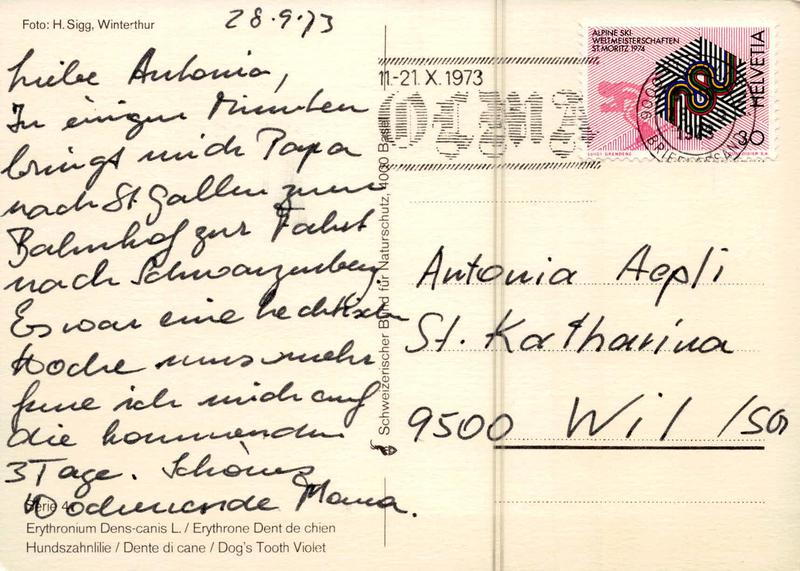 Foto: H. Sigg, Winterthur
28.9.73
Liebe Antonia,
In einigen Minuten
bringt mich Papa
nach St Gallen zum
Bahnhof zur Fahrt
nach Schwarzenberg.
Es war eine hecktische
Woche umso mehr
freue ich mich auf
die kommenden
3 Tage. Schönes
Wochenende Mama.
Serie 4
Erythronium Dens-canis L. / Erythrone Dent de chien
Hundszahnlilie / Dente di cane / Dog's Tooth Violet
Schweizerischer Bund für Naturschutz, 4000 Basel
11-21. X. 1973
OLMA
ALPINE SKI-
WELTMEISTERSCHAFTEN
ST. MORITZ 1974
HELVETIA
30
9000
1973
BRIEFVERSAND
Antonia Aepli
St. Katharina
9500 Wil /SG